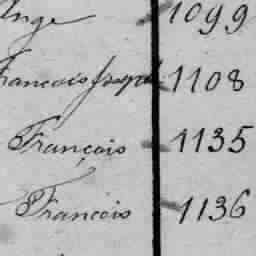 Ange 1099
François Joseph 1108
François 1135
François 1136